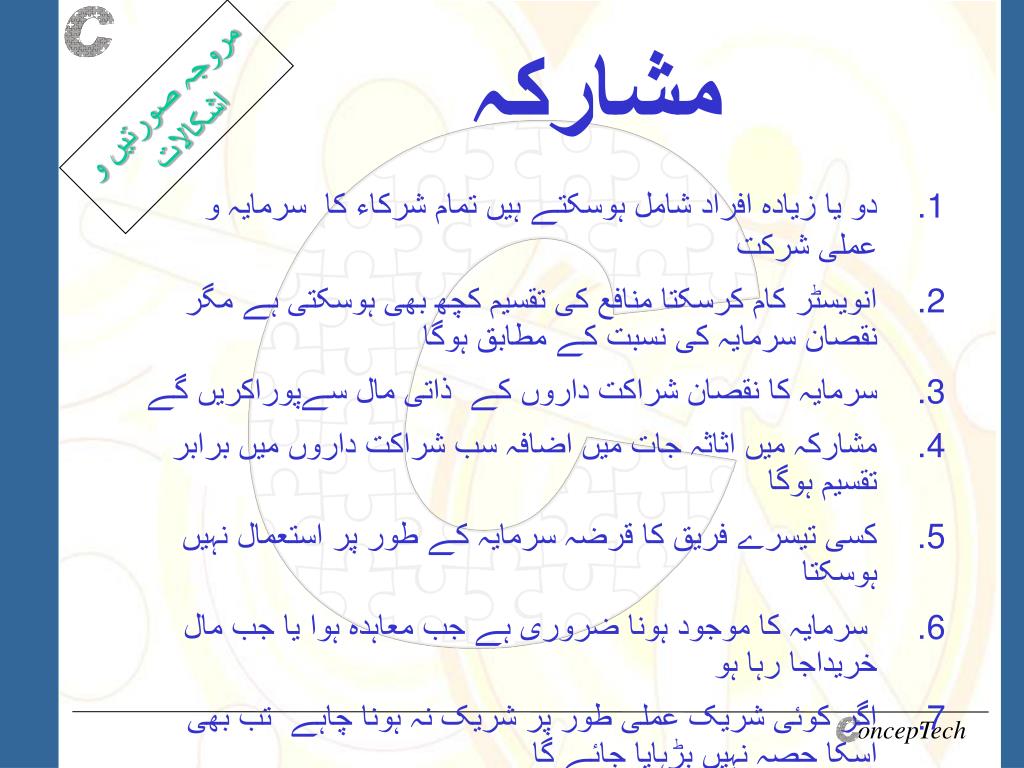 مروجہ صورتیں و
اشکالات
مشارکہ
1. دو یا زیادہ افراد شامل ہوسکتے ہیں تمام شرکاء کا سرمایہ و
عملی شرکت
2. انویسٹر کام کرسکتا منافع کی تقسیم کچھ بھی ہوسکتی ہے مگر
نقصان سرمایہ کی نسبت کے مطابق ہوگا
3. سرمایہ کا نقصان شراکت داروں کے ذاتی مال سےپوراکریں گے
4. مشارکہ میں اثاثہ جات میں اضافہ سب شراکت داروں میں برابر
تقسیم ہوگا
5. کسی تیسرے فریق کا قرضہ سرمایہ کے طور پر استعمال نہیں
ہوسکتا
6. سرمایہ کا موجود ہونا ضروری ہے جب معاہدہ ہوا یا جب مال
خریداجا رہا ہو
7. اگر کوئی شریک عملی طور پر شریک نہ ہونا چاہے تب بھی
اسکا حصہ نہیں بڑہایا جائے گا
ConcepTech